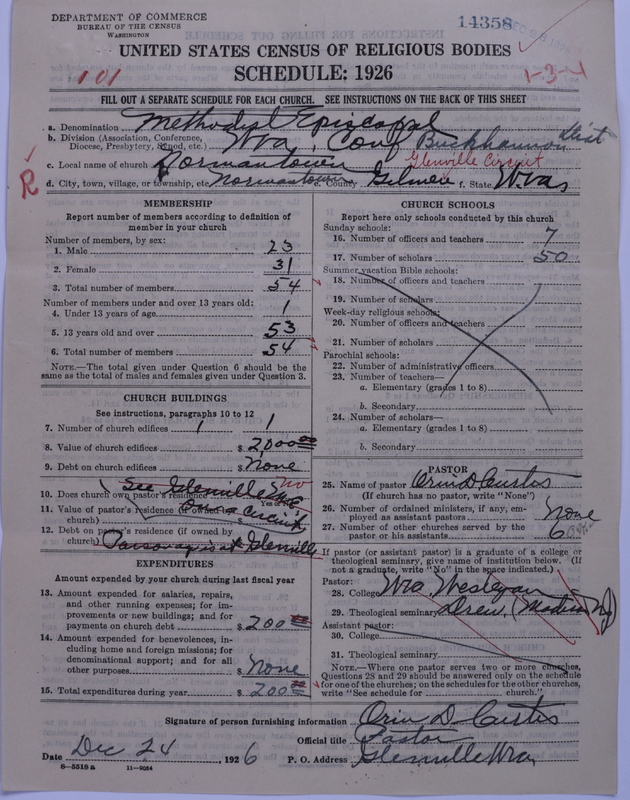 DEPARTMENT OF COMMERCE
BUREAU OF THE CENSUS
WASHINGTON
14358
UNITED STATES CENSUS OF RELIGIOUS BODIES
SCHEDULE: 1926
101
1-3-4
FILL OUT A SEPARATE SCHEDULE FOR EACH CHURCH. SEE INSTRUCTIONS ON THE BACK OF THIS SHEET
a. Denomination Methodist Episcopal
b. Division (Association, Conference, Diocese, Presbytery, Synod, etc.) W Va. Conf Buckhannon Dist
Glenville Circuit
c. Local name of church Normantown
d. City, town, village, or township, etc. Normantown e. County Gilmer f. State W. Va
R
MEMBERSHIP
Report number of members according to definition of
member in your church
Number of members, by sex:
1. Male 23
2. Female 31
3. Total number of members 54
Number of members under and over 13 years old:
4. Under 13 years of age 1
5. 13 years old and over 53
6. Total number of members 54
NOTE.—The total given under Question 6 should be
same as the total of males and females given under Question 3.
CHURCH BUILDINGS
See instructions, paragraphs 10 to 12
7. Number of church edifices 1 1
8. Value of church edifices $ 2,000 00
9. Debt on church edifices $ None
See Glenville M.E. No
10. Does church own pastor's residence
on a circuit
11. Value of pastor's residence (if owned by
church) $
12. Debt on pastor's residence (if owned by
church) Parsonage is at Glenville
EXPENDITURES
Amount expended by your church during last fiscal year
13. Amount expended for salaries, repairs,
and other running expenses; for im-
provements or new buildings; and for
payments on church debt $ 200 00
14. Amount expended for benevolences, in-
cluding home and foreign missions; for
denominational support; and for all
other purposes $ None
15. Total expenditures during year $ 200 00
CHURCH SCHOOLS
Report here only schools conducted by this church
Sunday schools:
16. Number of officers and teachers 7
17. Number of scholars 50
Summer vacation Bible schools:
18. Number of officers and teachers
19. Number of scholars
Week-day religious schools:
20. Number of officers and teachers
21. Number of scholars
Parochial schools:
22. Number of administrative officers
23. Number of teachers—
a. Elementary (grades 1 to 8)
b. Secondary
24. Number of scholars—
a. Elementary (grades 1 to 8)
b. Secondary
PASTOR
25. Name of pastor Orin D Curtis
(If church has no pastor, write "None")
26. Number of ordained ministers, if any, em-
ployed as assistant pastors None
27. Number of other churches served by the
pastor or his assistants 6
If pastor (or assistant pastor) is a graduate of a college or
theological seminary, give name of institution below. (If
not a graduate, write "No" in the space indicated.)
Pastor:
28. College W Va. Wesleyan
29. Theological seminary Drew, (Madison NJ)
Assistant pastor:
30. College
31. Theological seminary
NOTE.—Where one pastor serves two or more churches,
Questions 28 and 29 should be answered only on the schedule
for one of the churches; on the schedules for the other churches,
write "See schedule for church."
Signature of person furnishing information Orin D Curtis
Official title Pastor
Date Dec 24, 1926 P. O. Address Glenville W Va
8-5518 a 11-9084